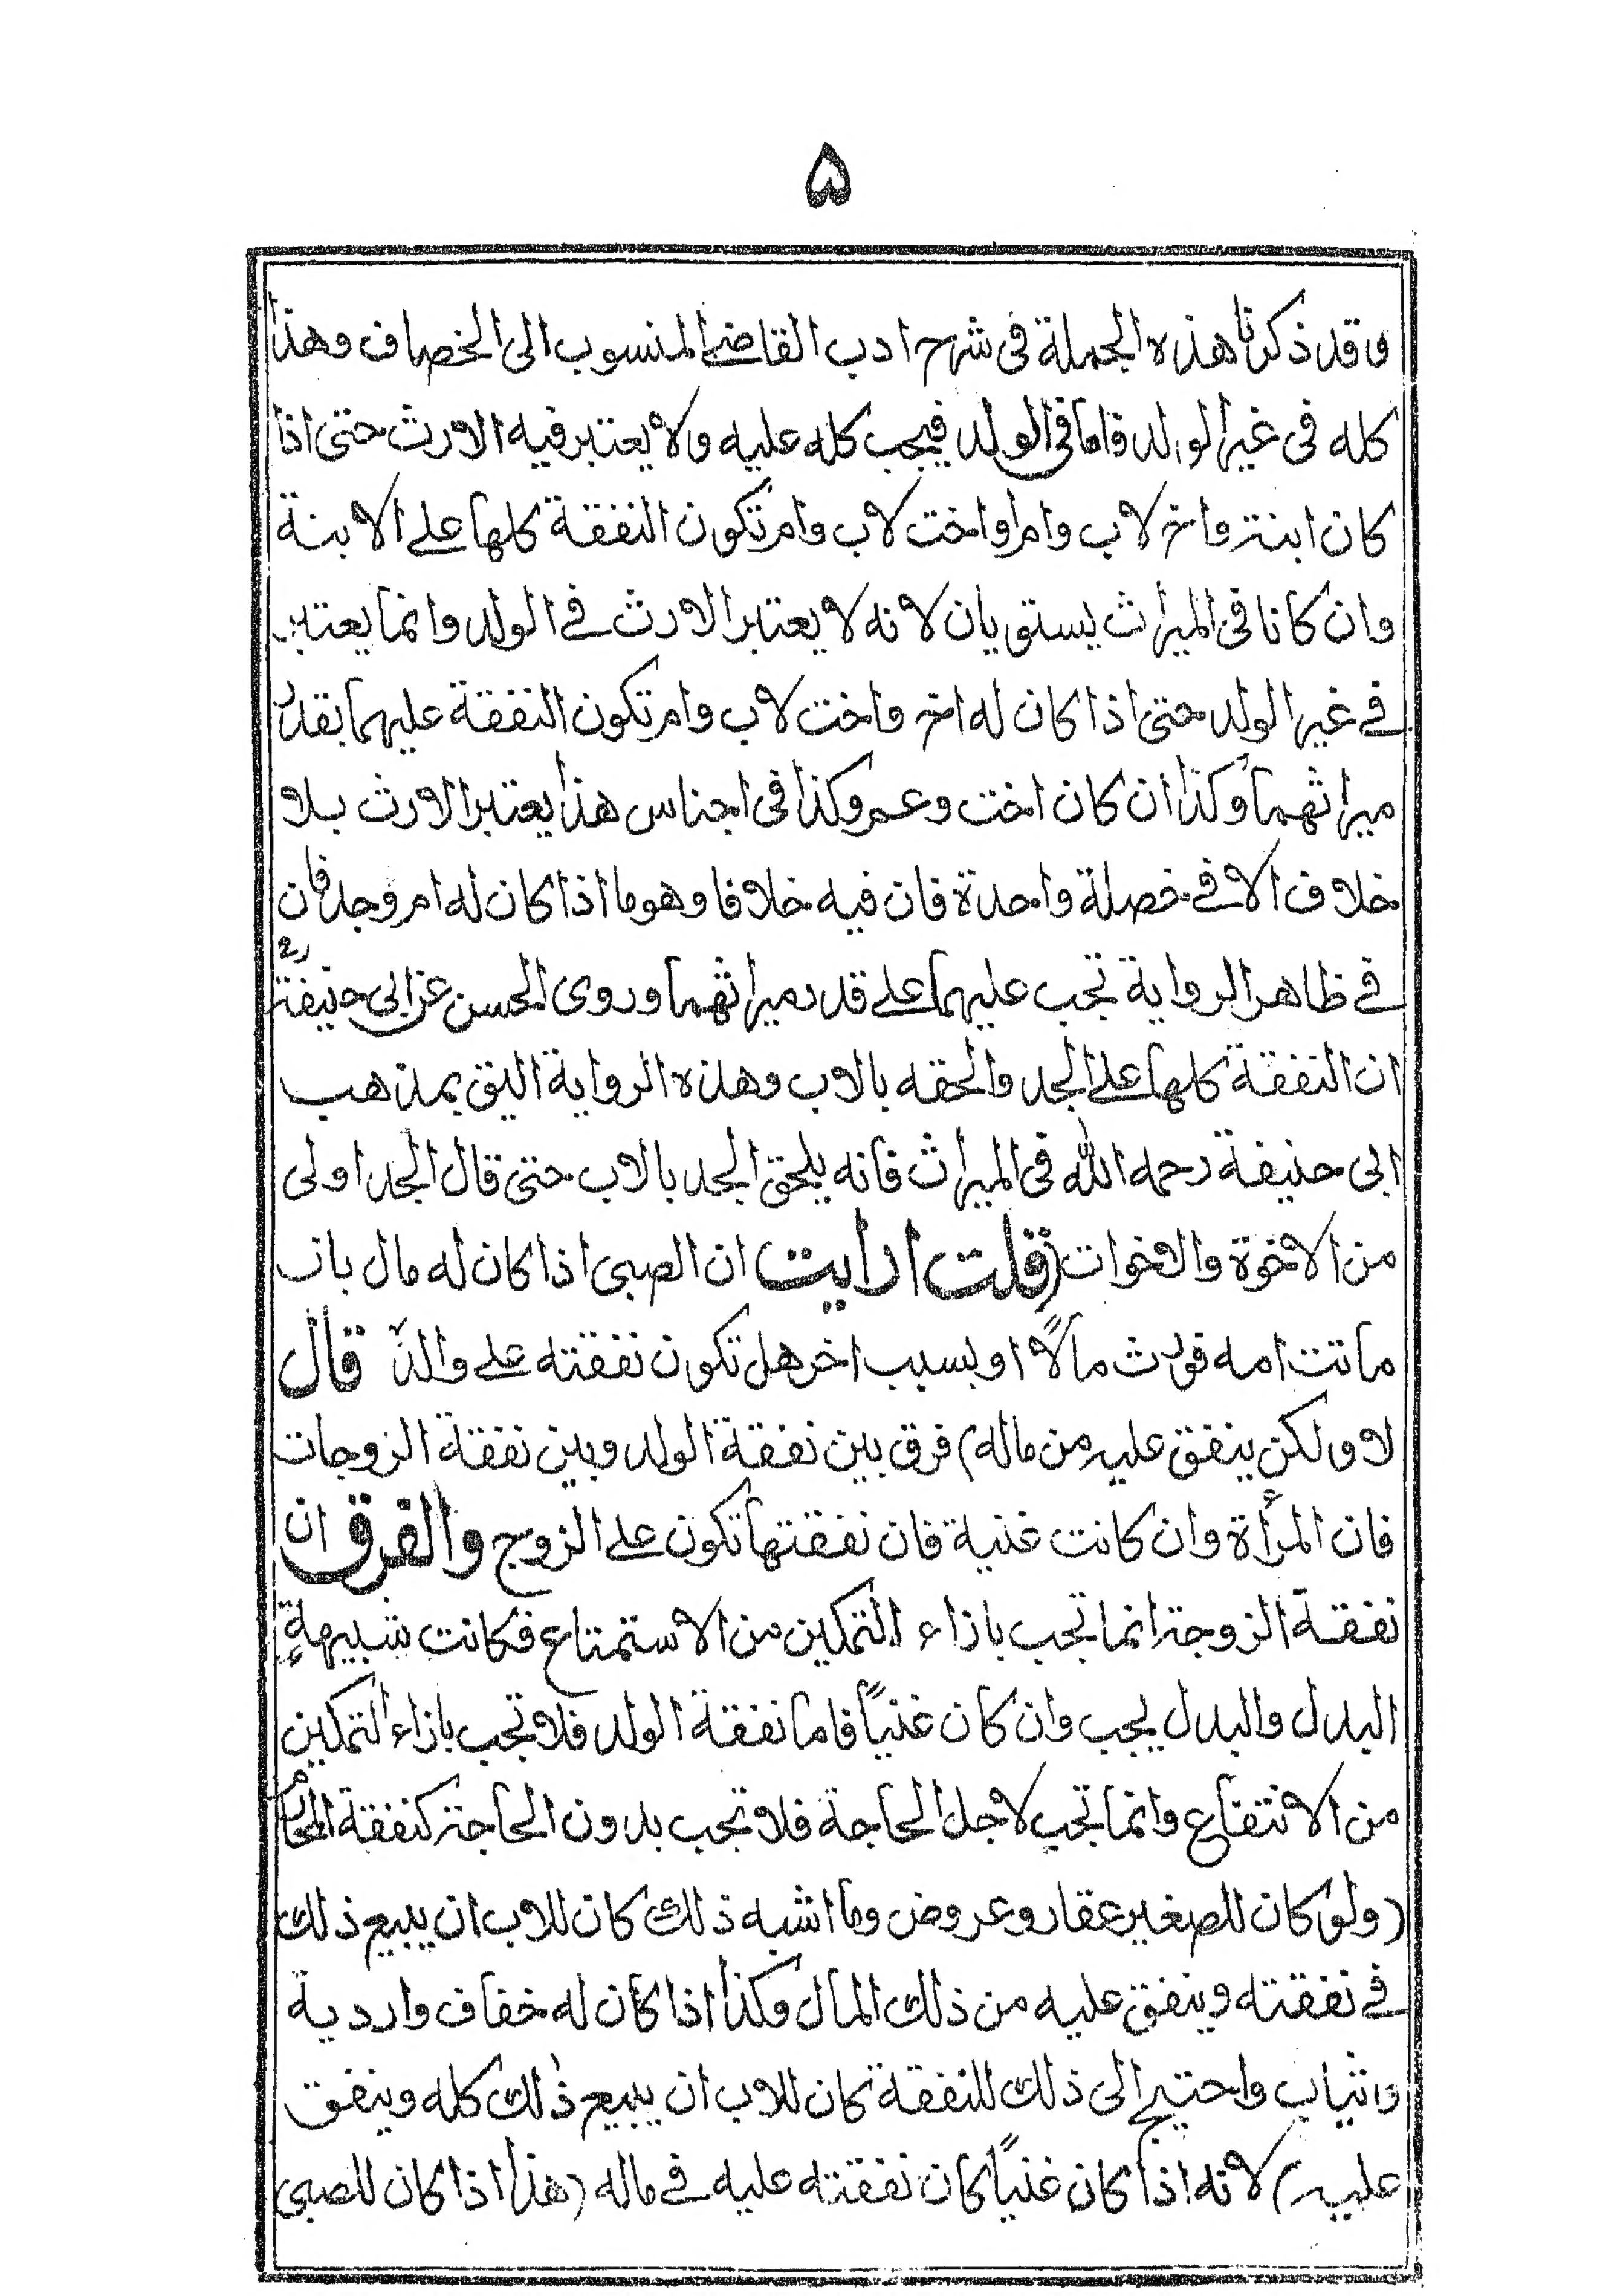 ۵
وقد ذكرنا هذه الجملة فى شرح ادب القاضى المنسوب الى الخصاف وهذا
كله فى غير الولد فاما فى الولد فيجب كله عليه ولا يعتبر فيه الارث حتى اذا
كان ابنة واخ لاب وام او اخت لاب وام تكون النفقة كلها على الابنة
وان كانا فى الميراث يستويان لانه لا يعتبر الارث فى الولد وانما يعتبر
فى غير الولد حتى اذا كان له اخ واخت لاب وام تكون النفقة عليهما بقدر
ميراثهما وكذا ان كان اخت وعم وكذا فى اجناس هذا يعتبر الارث بلا
خلاف الا فى خصلة واحدة فان فيه خلافا وهو ما اذا كان له ام وجد فان
فى ظاهر الرواية تجب عليهما على قدر ميراثهما وروى الحسن عن ابى حنيفة رح
ان النفقة كلها على الجد والحقه بالاب وهذه الرواية اليق بمذهب
ابى حنيفة رحمه الله فى الميراث فانه يلحق الجد بالاب حتى قال الجد اولى
من الاخوة والاخوات (قلت ارايت ان الصبى اذا كان له مال بان
ماتت امه فورث مالاً او بسبب اخر هل تكون نفقته على والده قال
لا ولكن ينفق عليه من ماله) فرق بين نفقة الولد وبين نفقة الزوجات
فان المرأة وان كانت غنية فان نفقتها تكون على الزوج والفرق ان
نفقة الزوجة انما تجب بازاء التمكين من الاستمتاع فكانت شبيهةٍ
البدل والبدل يجب وان كان غنياً فاما نفقة الولد فلا تجب بازاء التمكين
من الانتفاع وانما تجب لاجل الحاجة فلا تجب بدون الحاجة كنفقة المحارم
(ولو كان للصغير عقار وعروض وما اشبه ذلك كان للاب ان يبيع ذلك
فى نفقته وينفق عليه من ذلك المال وكذا اذا كان له خفاف واردية
واثياب واحتيج الى ذلك للنفقة كان للاب ان يبيع ذلك كله وينفق
عليه) لانه اذا كان غنياً كان نفقته عليه فى ماله (هذا اذا كان للصبى